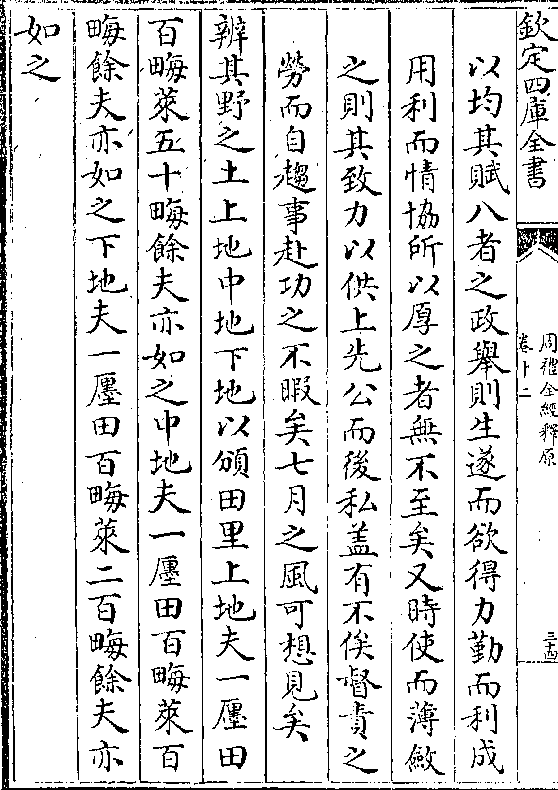 欽定四庫全書
周禮全經釋原
卷十二
三十四
以均其賦八者之政舉則生遂而欲得力勤而利成
用利而情協所以厚之者無不至矣又時使而薄斂
之則其致力以供上先公而後私盖有不俟督責之
勞而自趨事赴功之不暇矣七月之風可想見矣
辨其野之土上地中地下地以頒田里上地夫一廛田
百畮萊五十畮餘夫亦如之中地夫一廛田百畮萊百
畮餘夫亦如之下地夫一廛田百畮萊二百畮餘夫亦
如之